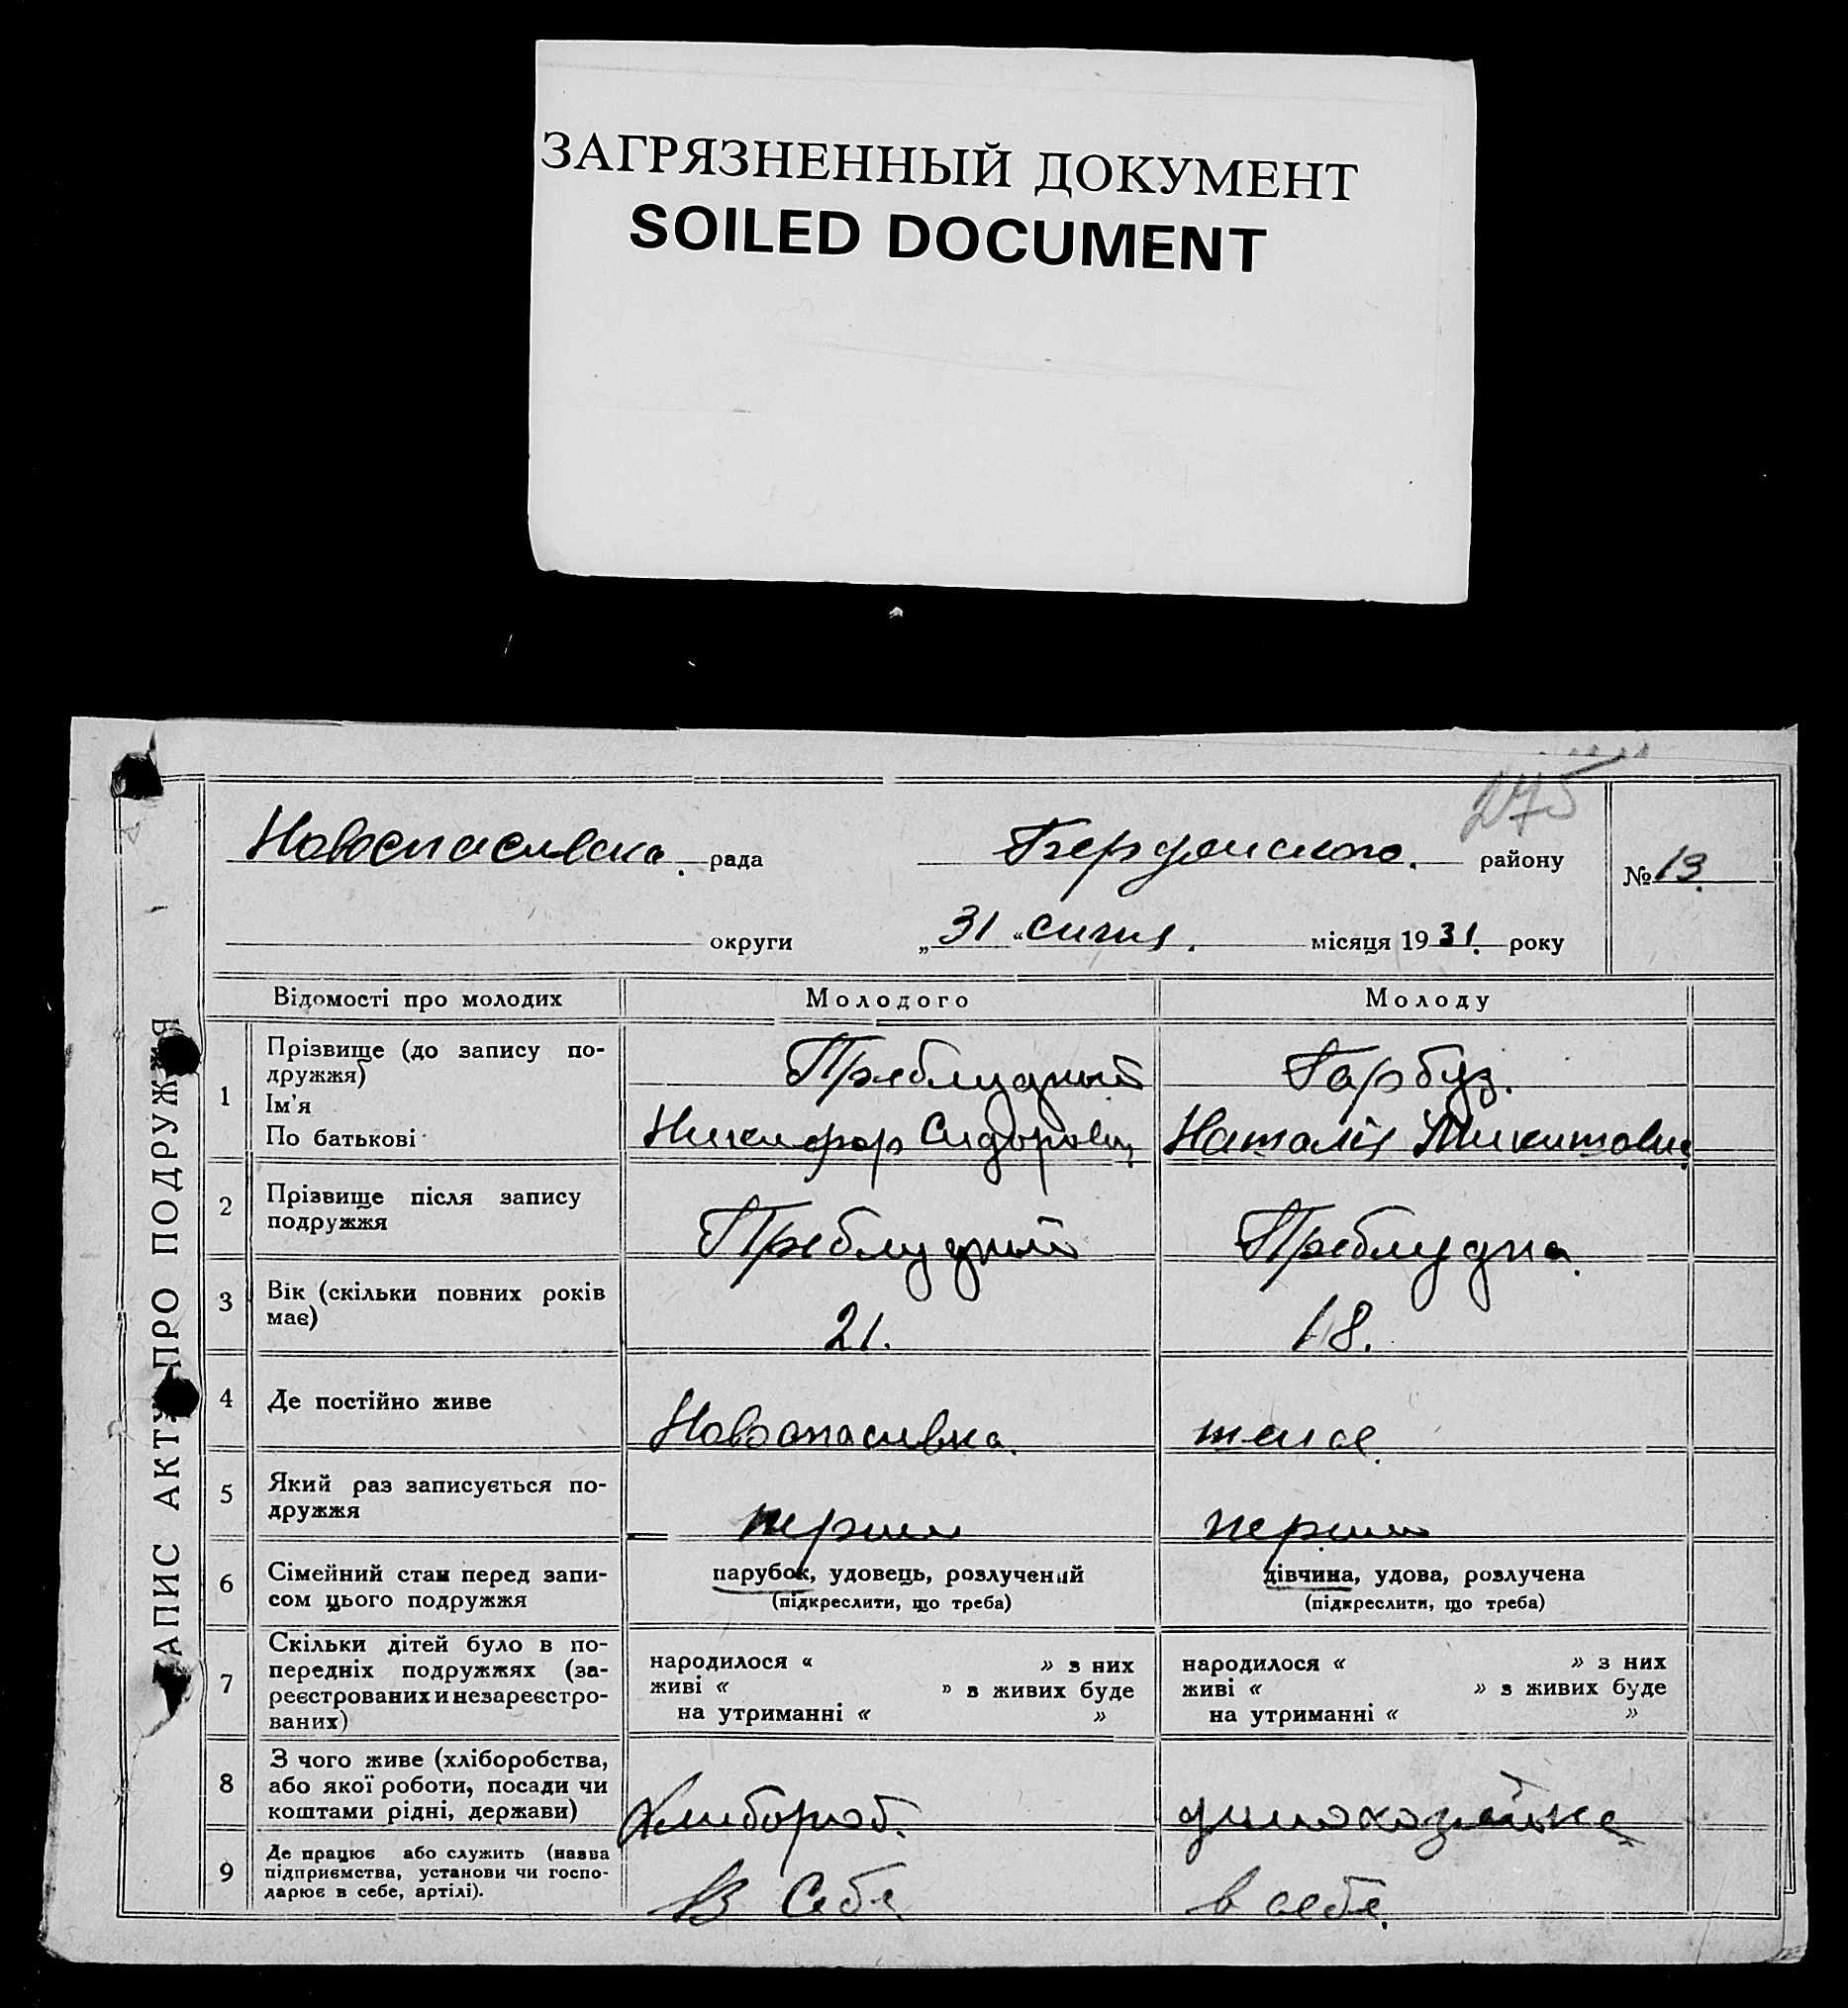 ЗАГРЯЗНЕННЫЙ ДОКУМЕНТ
SOILED DOCUMENT
275
Новоспасивска рада Бердянского. району № 13.
округи „31“ сичня. місяця 1931. року
АПИС АКТУ ПРО ПОДРУЖЖЯ
Відомості про молодих Молодого Молоду
1 Прізвище (до запису по-
дружжя)
Ім'я
По батькові
Приблудний Гарбуз.
Никифор Сидорович Наталія Микитовна
2 Прізвище після запису
подружжя
Приблудний Приблудна.
3 Вік (скільки повних років
має)
21. 18.
4 Де постійно живе Новоспасивка. теж
5 Який раз записується по-
дружжя
перший перший
6 Сімейний стан перед запи-
сом цього подружжя
парубок, удовець, розлучений дівчина, удова, розлучена
(підкреслити, що треба) (підкреслити, що треба)
7 Скільки дітей було в по-
передніх подружжях (за-
реєстрованих и незареєстро-
ваних)
народилося « » з них народилося « » з них
живі « » з живих буде живі « » з живих буде
на утриманні « » на утриманні « »
8 З чого живе (хліборобства,
або якої роботи, посади чи
коштами рідні, держави)
Хлибороб. домохозяйка
9 Де працює або служить (назва
підприємства, установи чи госпо-
дарює в себе, артілі).
В Себе в себе.